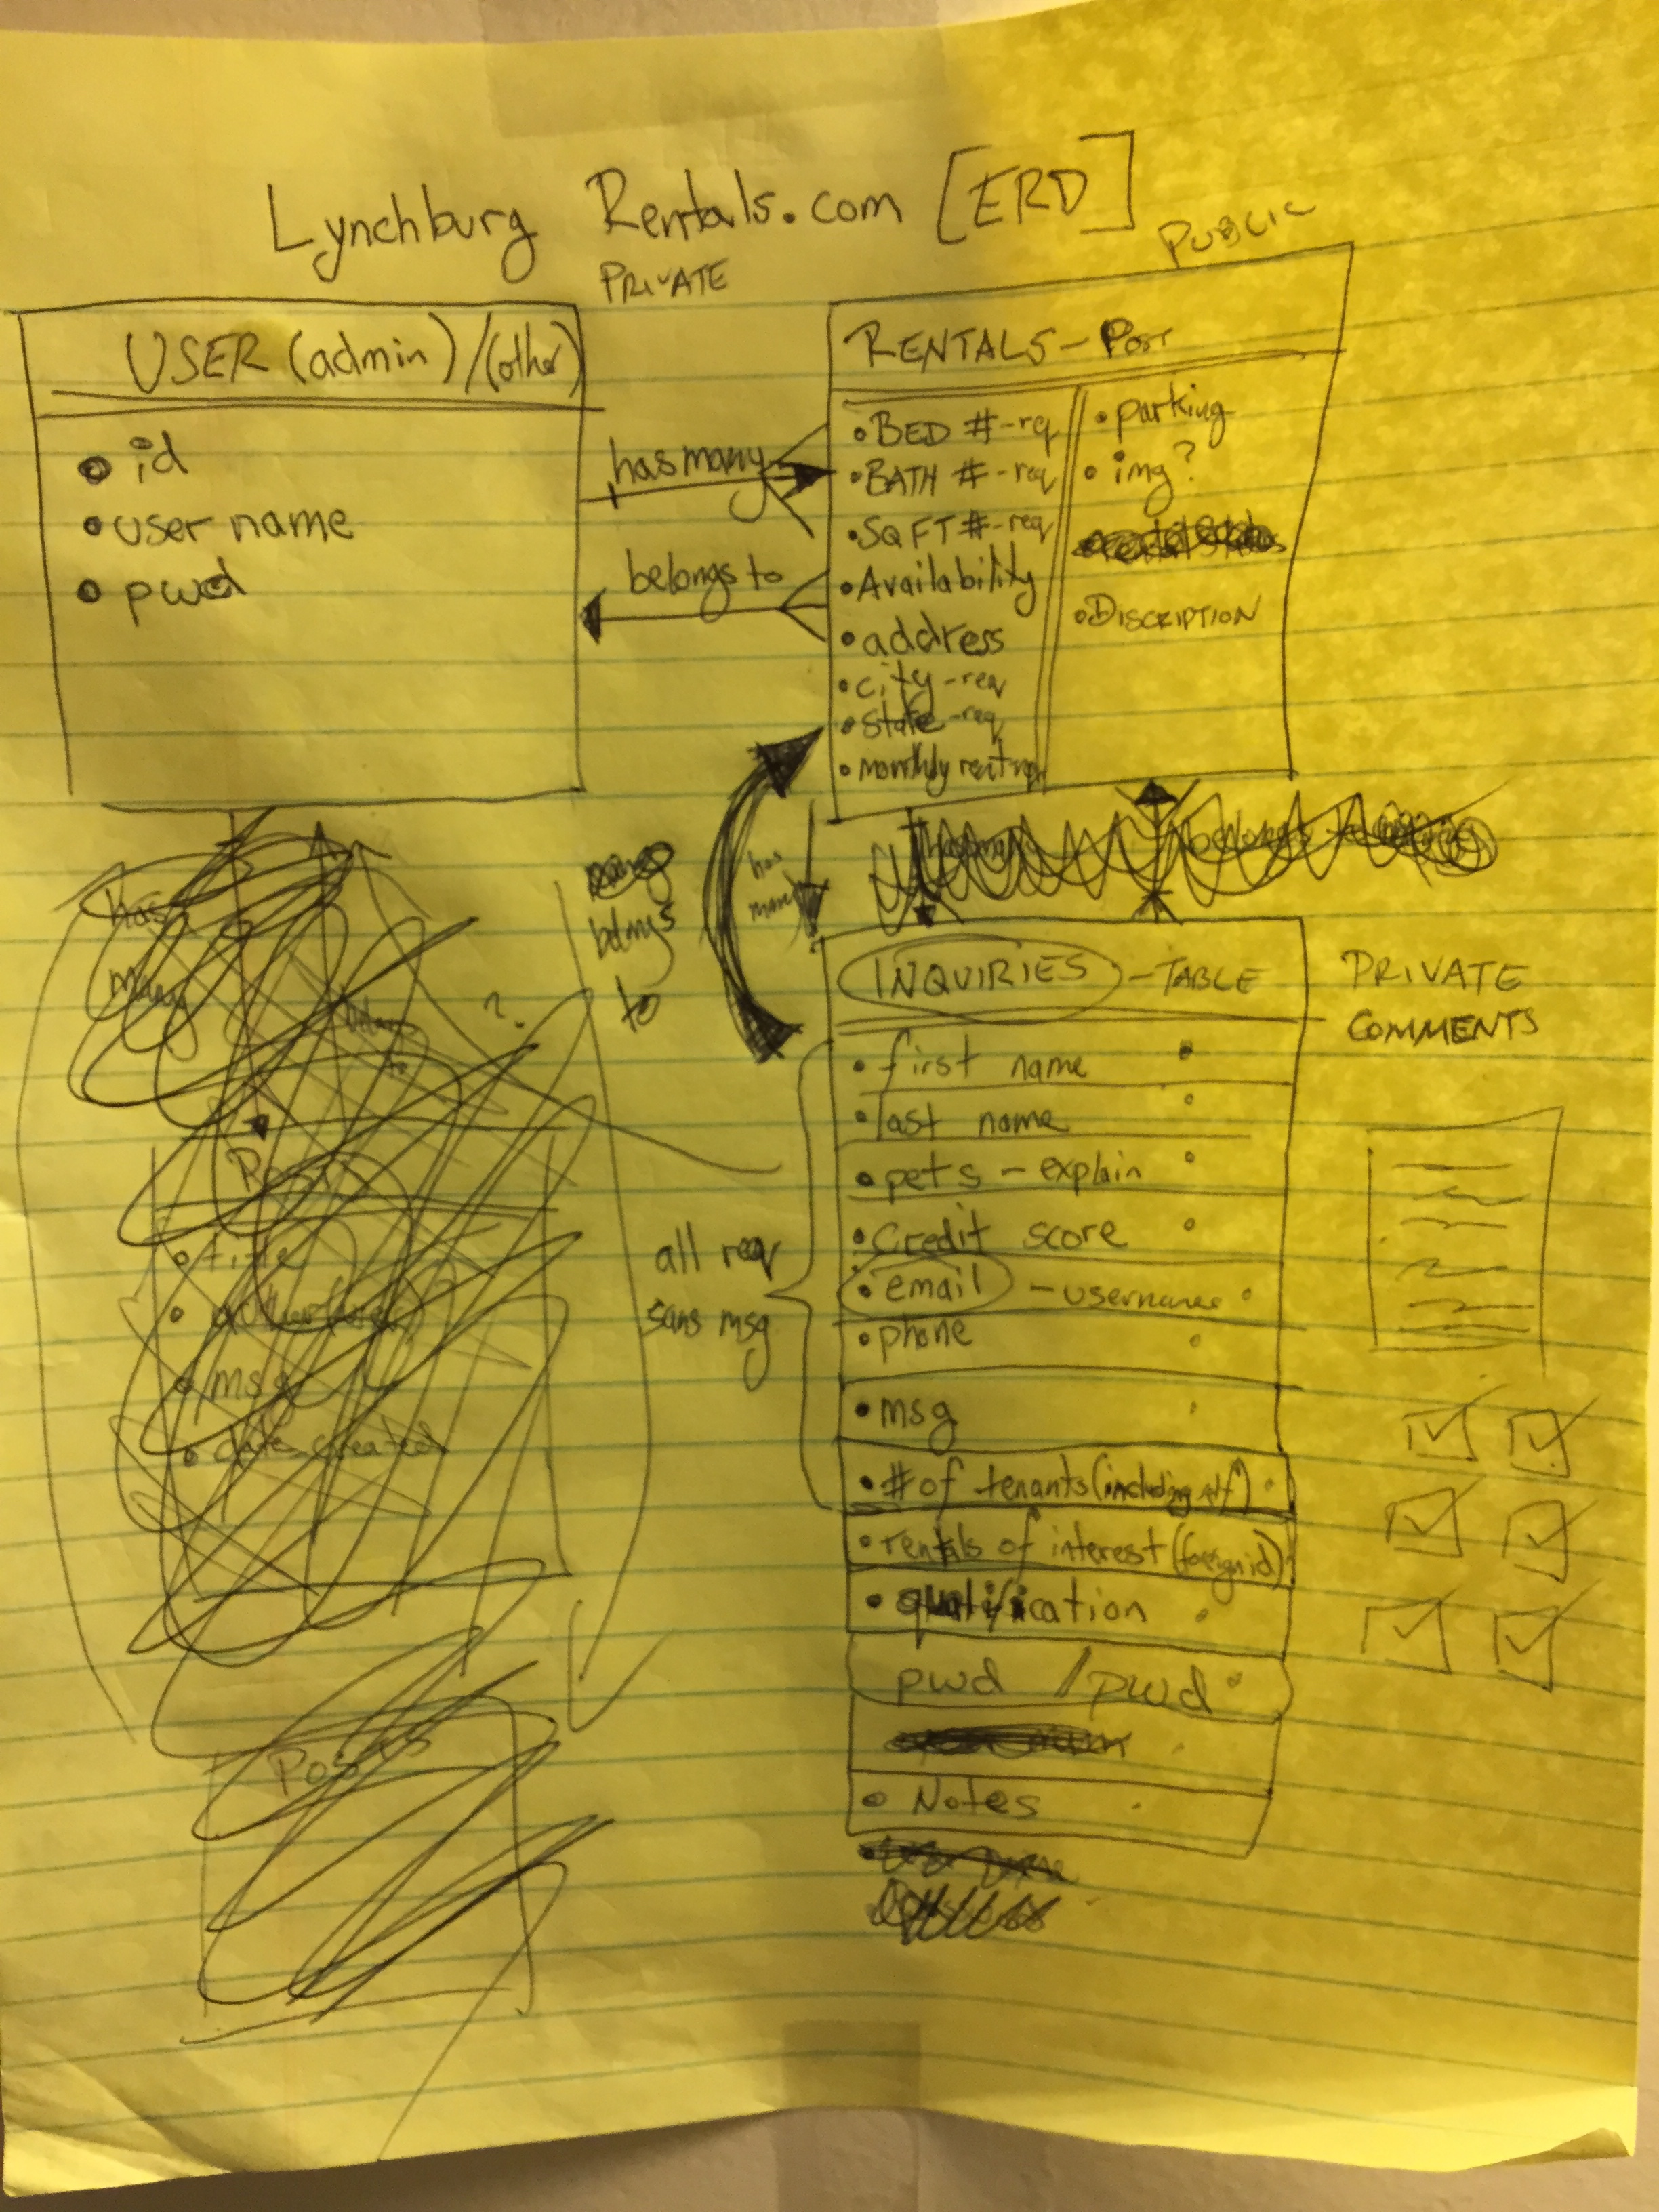 Lynchburg Rentals.com [ERD]
PRIVATE
PUBLIC
USER (admin)/(other)
• id
• user name
• pwd
has many
belongs to
RENTALS - POST
• BED #-req
• BATH #-req
• SQFT #-req
• Availability
• address
• city-req
• state-req
• monthly rent
• parking
• img?
• DISCRIPTION
belongs
to
has
many
has
many
?
Posts
• title
• msg
• date created
Posts
INQUIRIES - TABLE
• first name
• last name
• pets - explain
• credit score
• email - username
• phone
• msg
• # of tenants (including self)
• rentals of interest (foreign id)
• qualification
pwd / pwd
• Notes
all req
sans msg
PRIVATE
COMMENTS